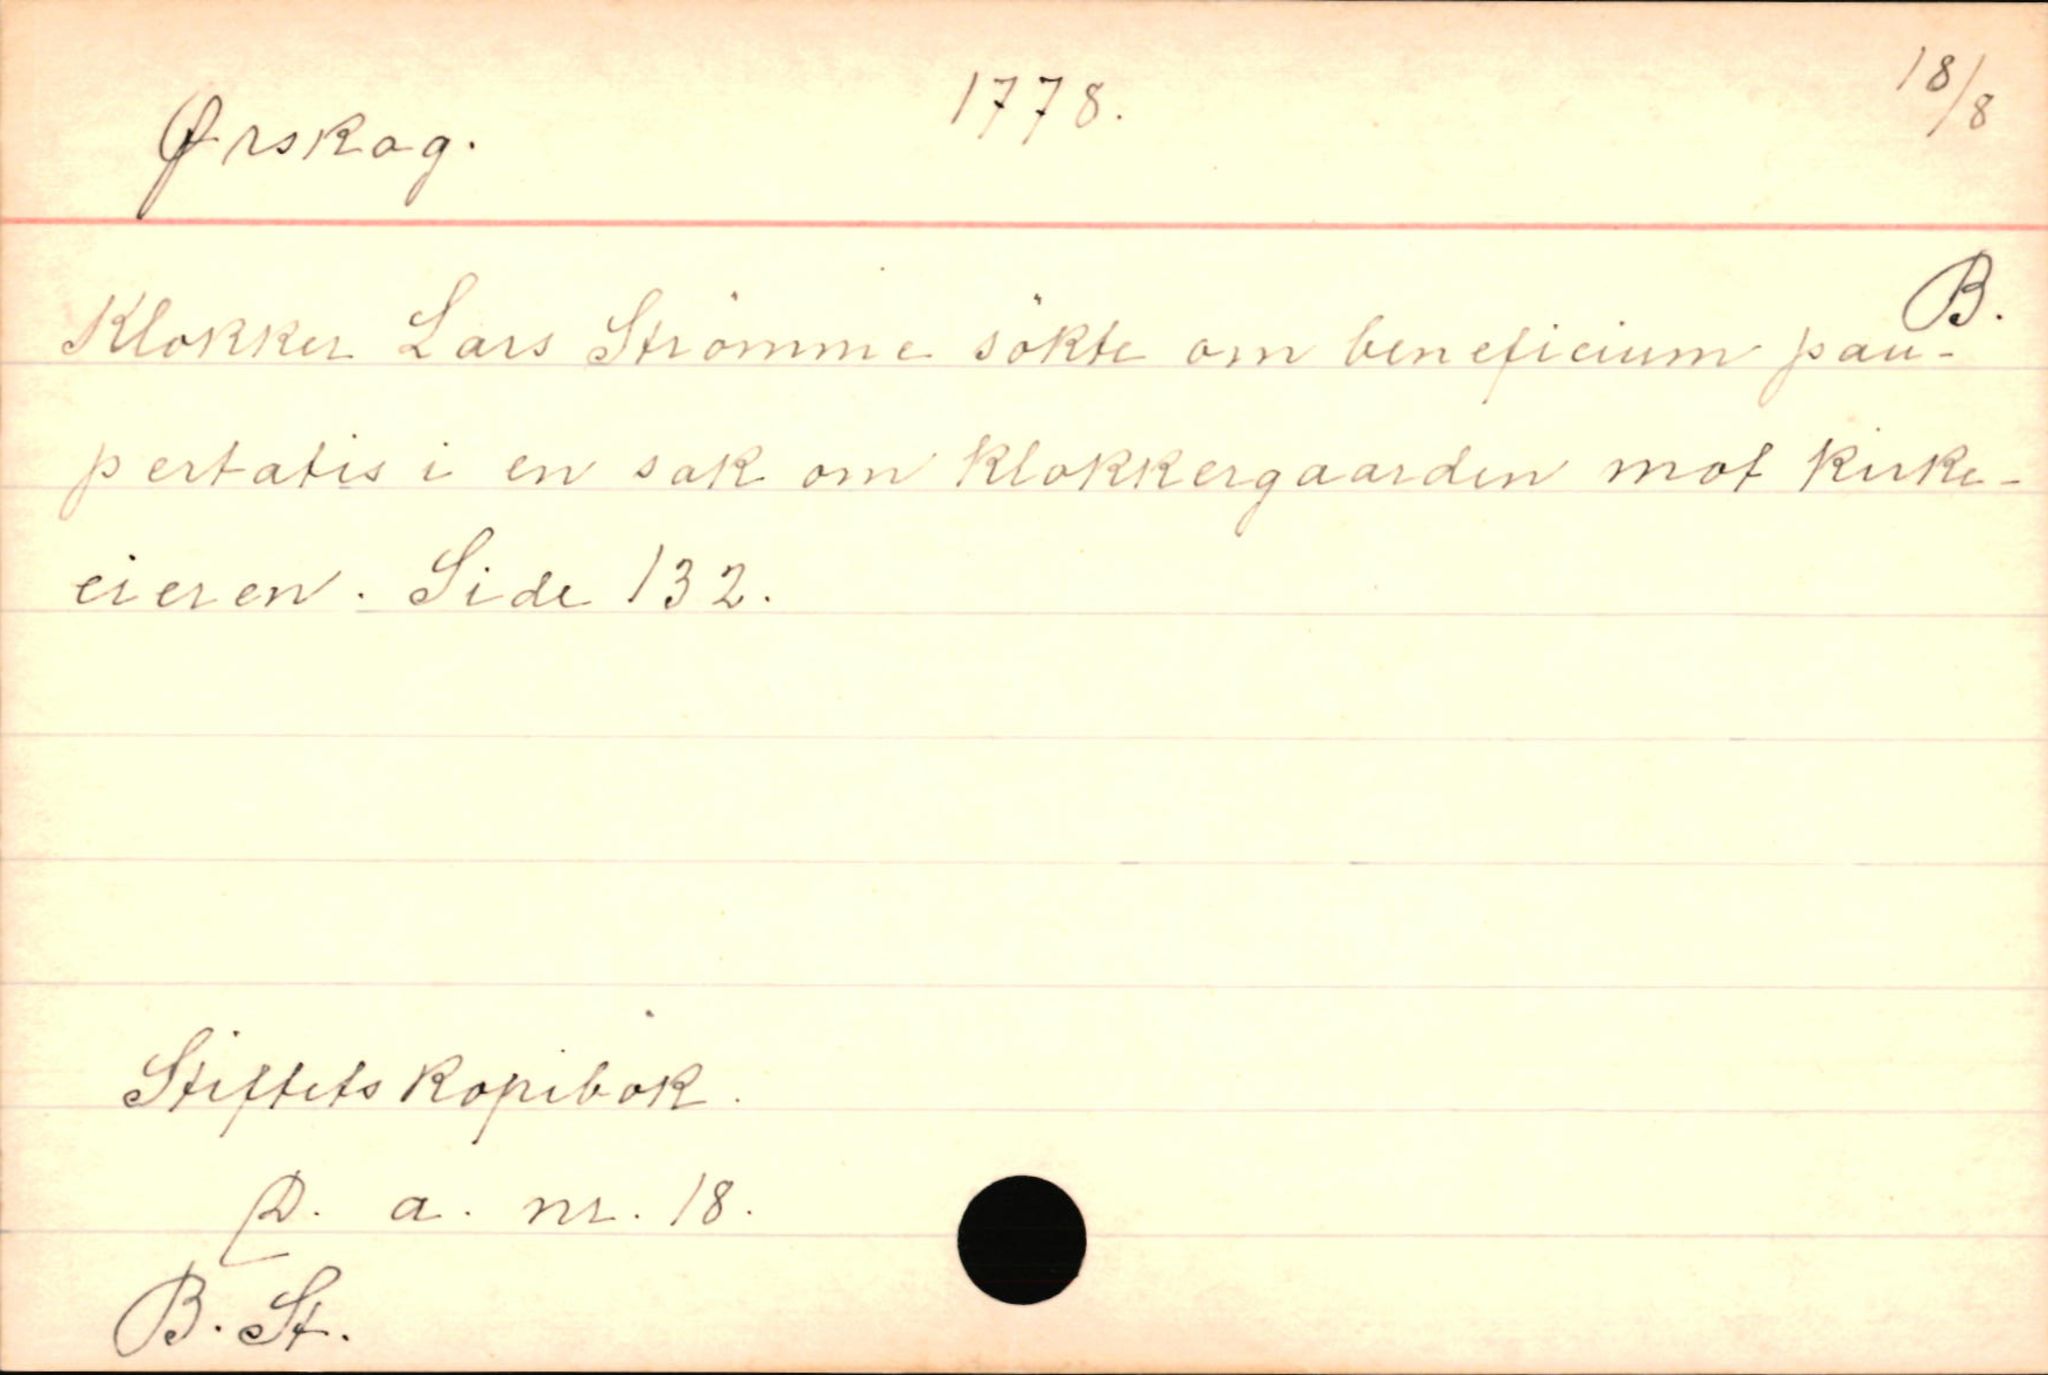 Ørskog. 1778. 18/8
B.
Klokker Lars Strömme sökte om beneficium pau-
pertatis i en sak om klokkergaarden mot kirke-
eieren. Side 132.
Stiftets kopibok.
D. a. nr. 18.
B. St.